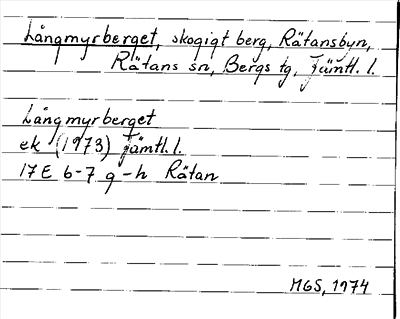 Långmyrberget, skogigt berg, Rätansbyn,
Rätans sn, Bergs tg, Jämtl. l.
Långmyrberget
ek (1973) Jämtl. l.
17E 6-7 g-h Rätan
MGS, 1974